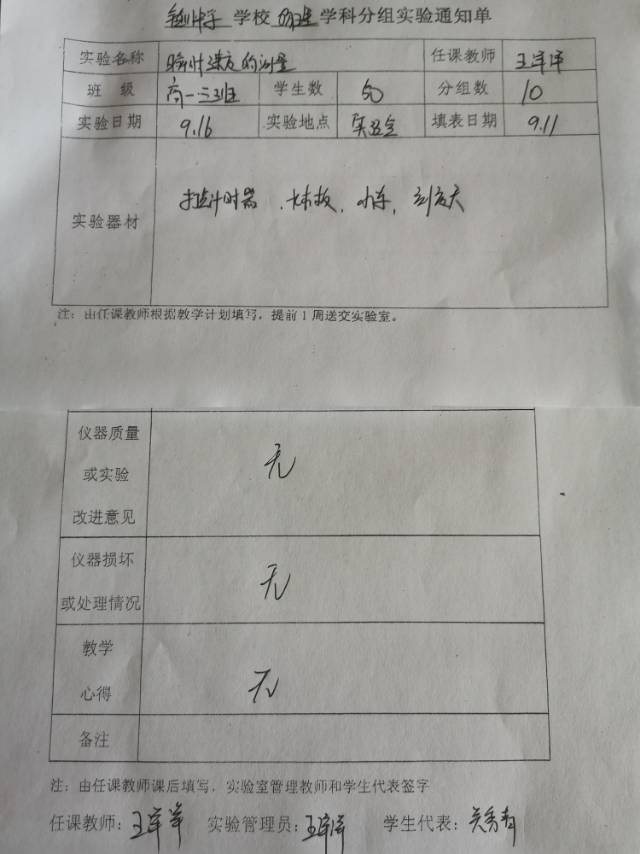 学校 物理 学科分组实验通知单
实验名称 瞬时速度的测量 任课教师 王洋洋
班 级 高一三班 学生数 50 分组数 10
实验日期 9.16 实验地点 实验室 填表日期 9.11
实验器材 打点计时器、长木板、小车、刻度尺
注：由任课教师根据教学计划填写，提前1周送交实验室。
仪器质量
或实验
改进意见
无
仪器损坏
或处理情况
无
教学
心得
无
备注
注：由任课教师课后填写，实验室管理教师和学生代表签字
任课教师：王洋洋 实验管理员：王洋洋 学生代表：